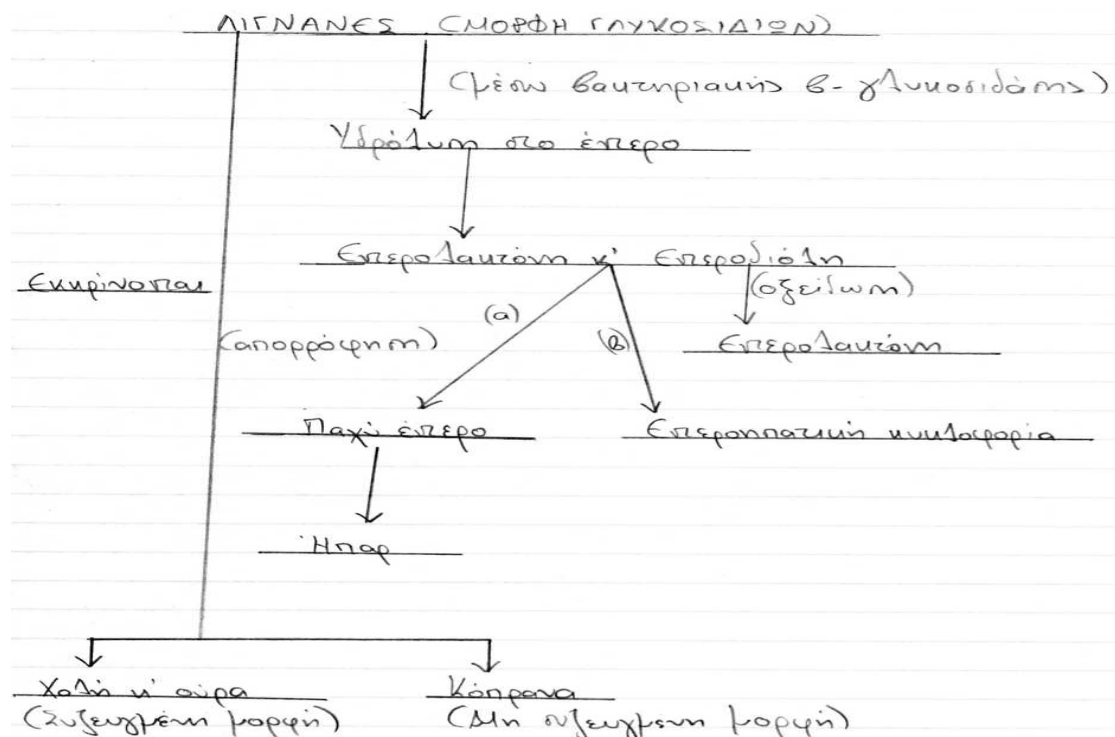 ΛΙΓΝΑΝΕΣ (ΜΟΡΦΗ ΓΛΥΚΟΣΙΔΙΩΝ)
(μέσω βακτηριακής β-γλυκοσιδάσης)
Υδρόλυση στο έντερο
Εντερολακτόνη κ' Εντεροδιόλη
Εκκρίνονται
(οξείδωση)
(α)
(απορρόφηση)
(β)
Εντερολακτόνη
Παχύ έντερο
Εντεροηπατική κυκλοφορία
Ήπαρ
Χολή κ' ούρα
Κόπρανα
(Συζευγμένη μορφή)
(Μη συζευγμένη μορφή)